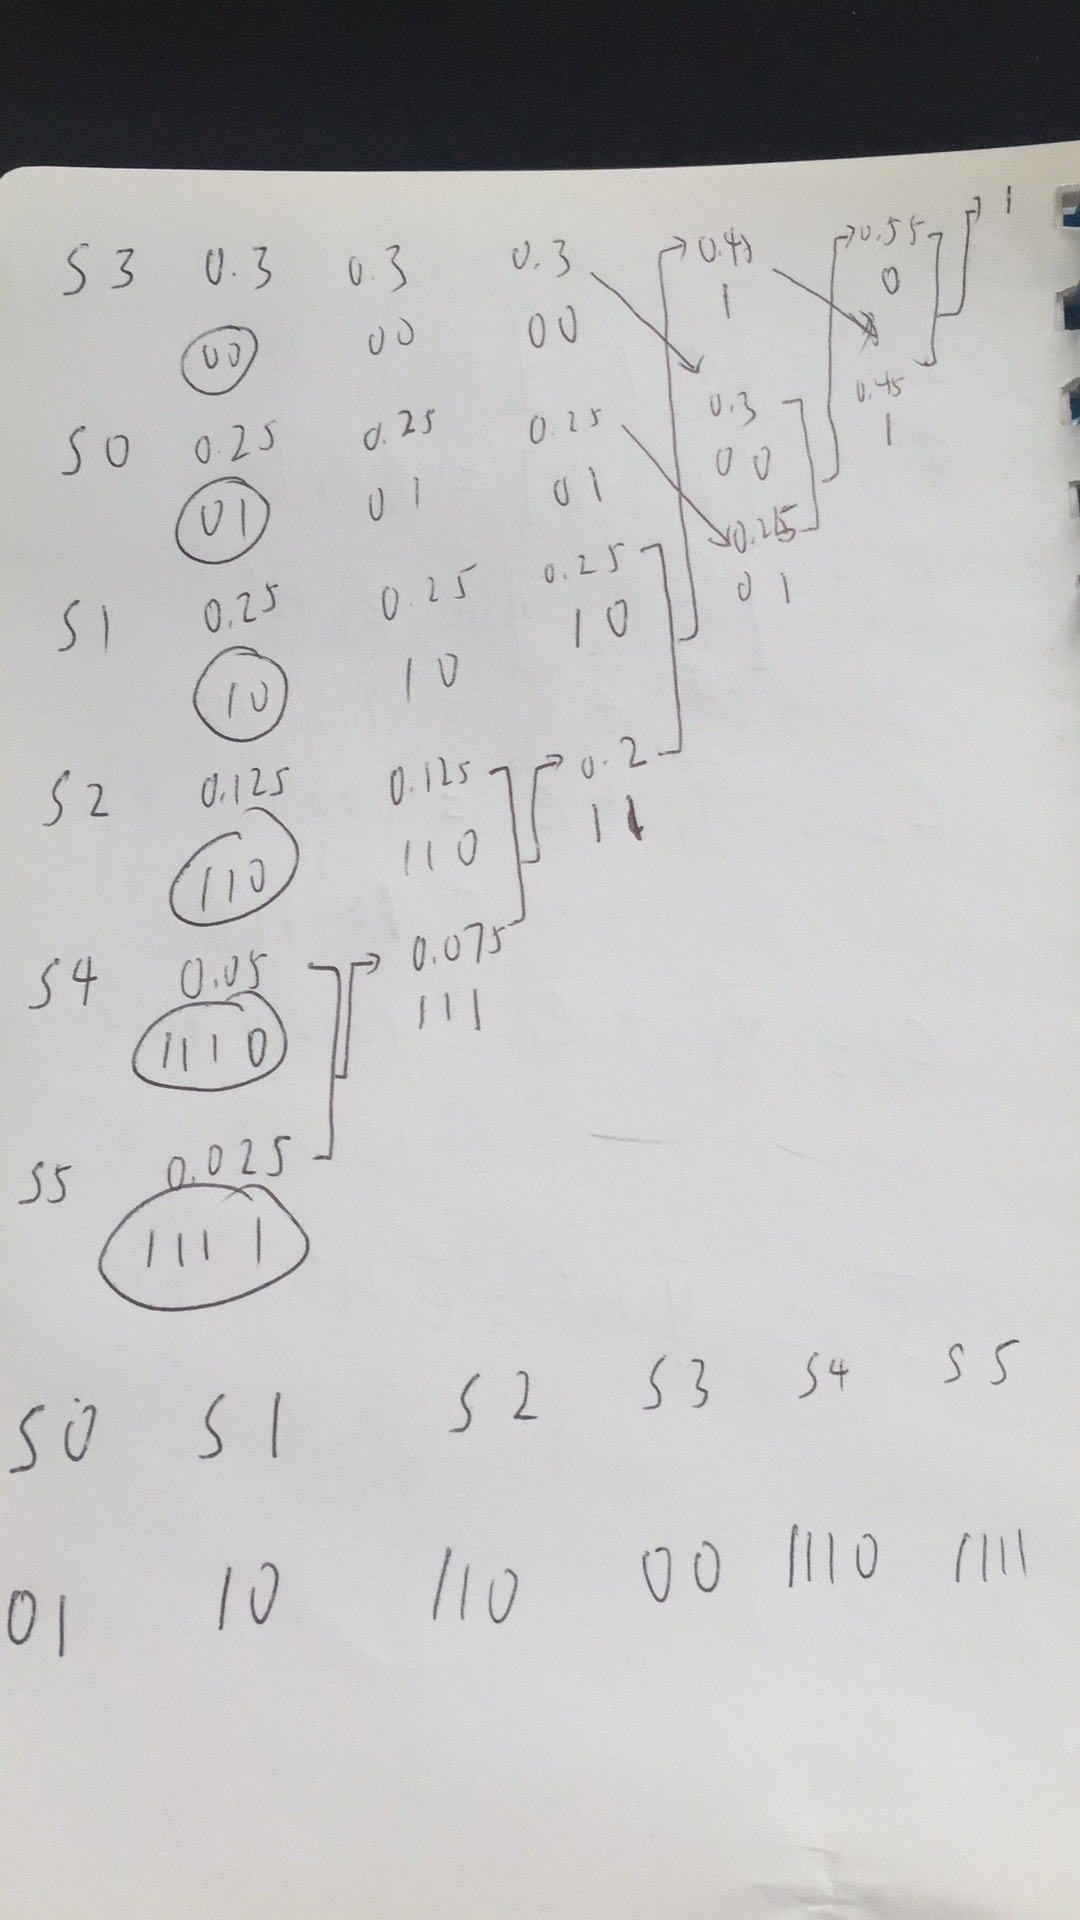 S3 0.3 0.3 0.3 0.45 0.55 1
0
1
00 00 00
0.45
0.3
1
S0 0.25 0.25 0.25
00
01 01 01
0.25
S1 0.25 0.25 0.25
01
10 10 10
S2 0.125 0.125 0.2
110 110 11
S4 0.05 0.075
1110 111
S5 0.025
1111
S0 S1 S2 S3 S4 S5
01 10 110 00 1110 1111